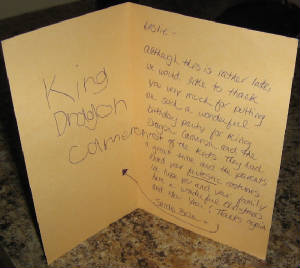 King
Dragon
Cameron
Leslie -
Although this is rather later
we would like to thank
you very much for putting
on such a wonderful
birthday party for King
Dragon Cameron and the
rest of the Kids. They had
a great time and the parents
loved your fantastic costumes
I hope you and your family
have a wonderful Christmas
and New Year! Thanks again